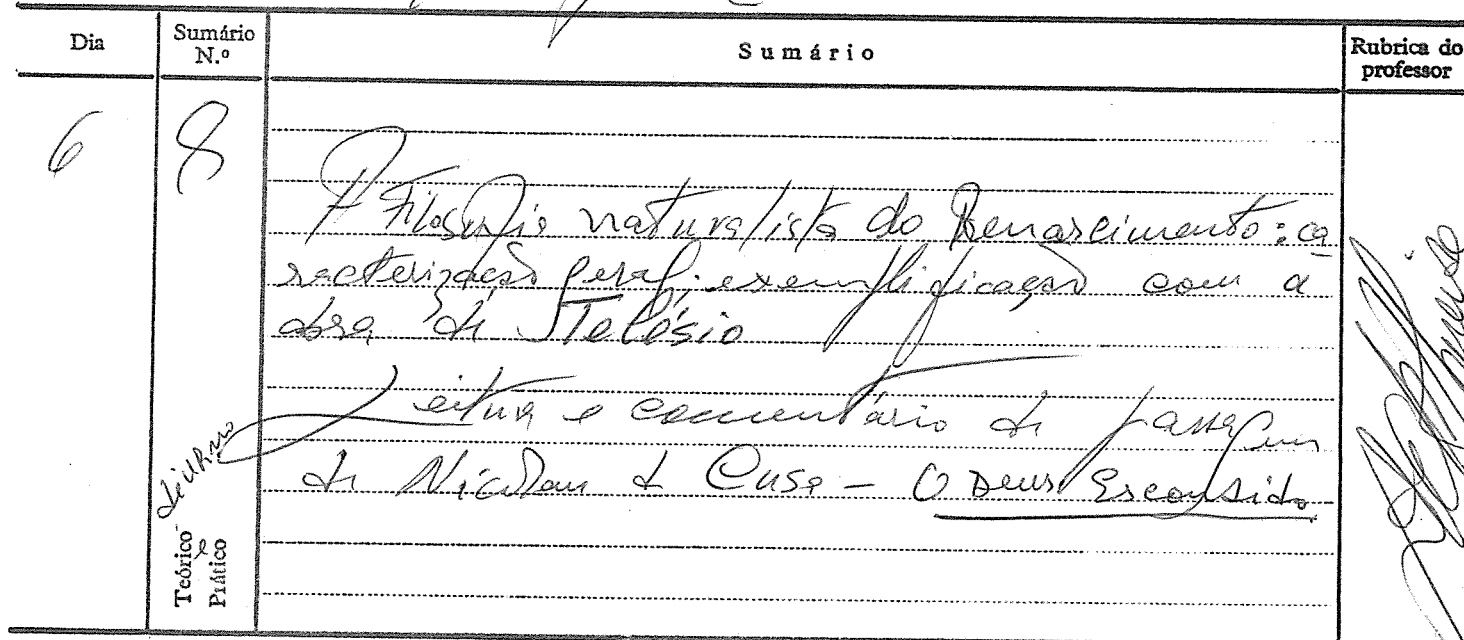 Dia
Sumário N.º
Sumário
Rubrica do professor
6
8
A Filosofia naturalista do Renascimento: ca
racterização geral; exemplificação com a
obra de Telésio
Leitura e comentário de passagens
de Nicolau de Cusa – O Deus Escondido
diurno
Teórico e Prático